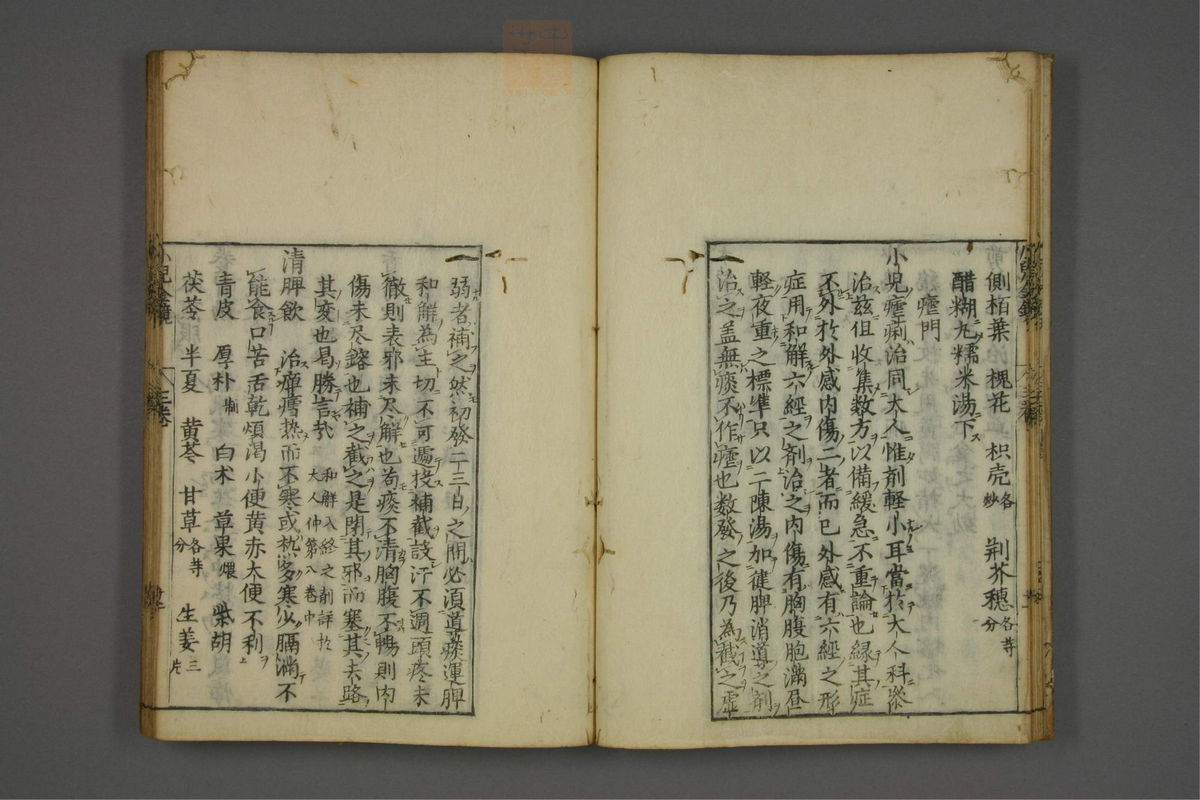 側栢葉 槐花 枳壳各炒 荆芥穗各等分
醋糊丸糯米湯下
瘧門
小児瘧痢治同大人惟剤軽小耳當於大人科叅
治玆但收集数方以備緩急不重論也縁其症
不外於外感内傷二者而已外感有六經之形
症用和解六經之剤治之内傷有胸腹胞滿昼
軽夜重之標準只以二陳湯加健脾消導之剤
治之盖無痰不作瘧也数發之後乃為截之虚
弱者補之然初發二三日之間必須道痰運脾
和解為主切不可遽投補截設汗不週頭疼未
徹則表邪未尽解也苟痰不清胸腹不暢則内
傷未尽鎔也補之截之是閉其邪而塞其去路
其変也曷勝言哉 和解入経之剤詳於
大人仲第八巻中
清脾飲 治癉瘧热而不寒或热多寒少膈滿不
能食口苦舌乾煩渇小便黄赤大便不利
青皮 厚朴制 白术 草果煨 柴胡
茯苓 半夏 黄芩 甘草各等分 生姜三片
三巻